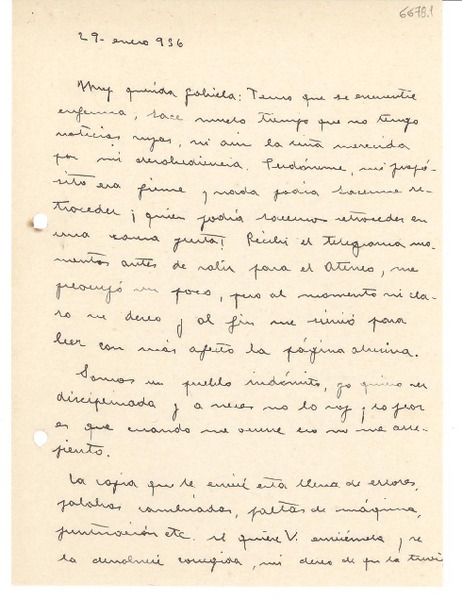 6678.1
29- enero 936
Muy querida Gabriela: Temo que se encuentre
enferma, hace mucho tiempo que no tengo
noticias suyas, ni aun la riña merecida
por mi desobediencia. Perdóneme, mi propó-
sito era firme y nada podía hacerme re-
troceder ¡quien podía hacernos retroceder en
una causa justa! Recibí el telegrama mo-
mentos antes de salir para el Ateneo, me
preocupó un poco, pero al momento ví cla-
ro su deseo y al fin me sirvió para
leer con más afecto la página
Somos un pueblo indómito, yo quiero ser
disciplinada y a veces no lo soy; lo peor
es que cuando me ocurre eso no me arre-
piento.
La copia que le envié está llena de errores,
palabras cambiadas, faltas de máquina,
puntuación etc. si quiere V. envíemela y se
la devolveré corregida, mi deseo de que la